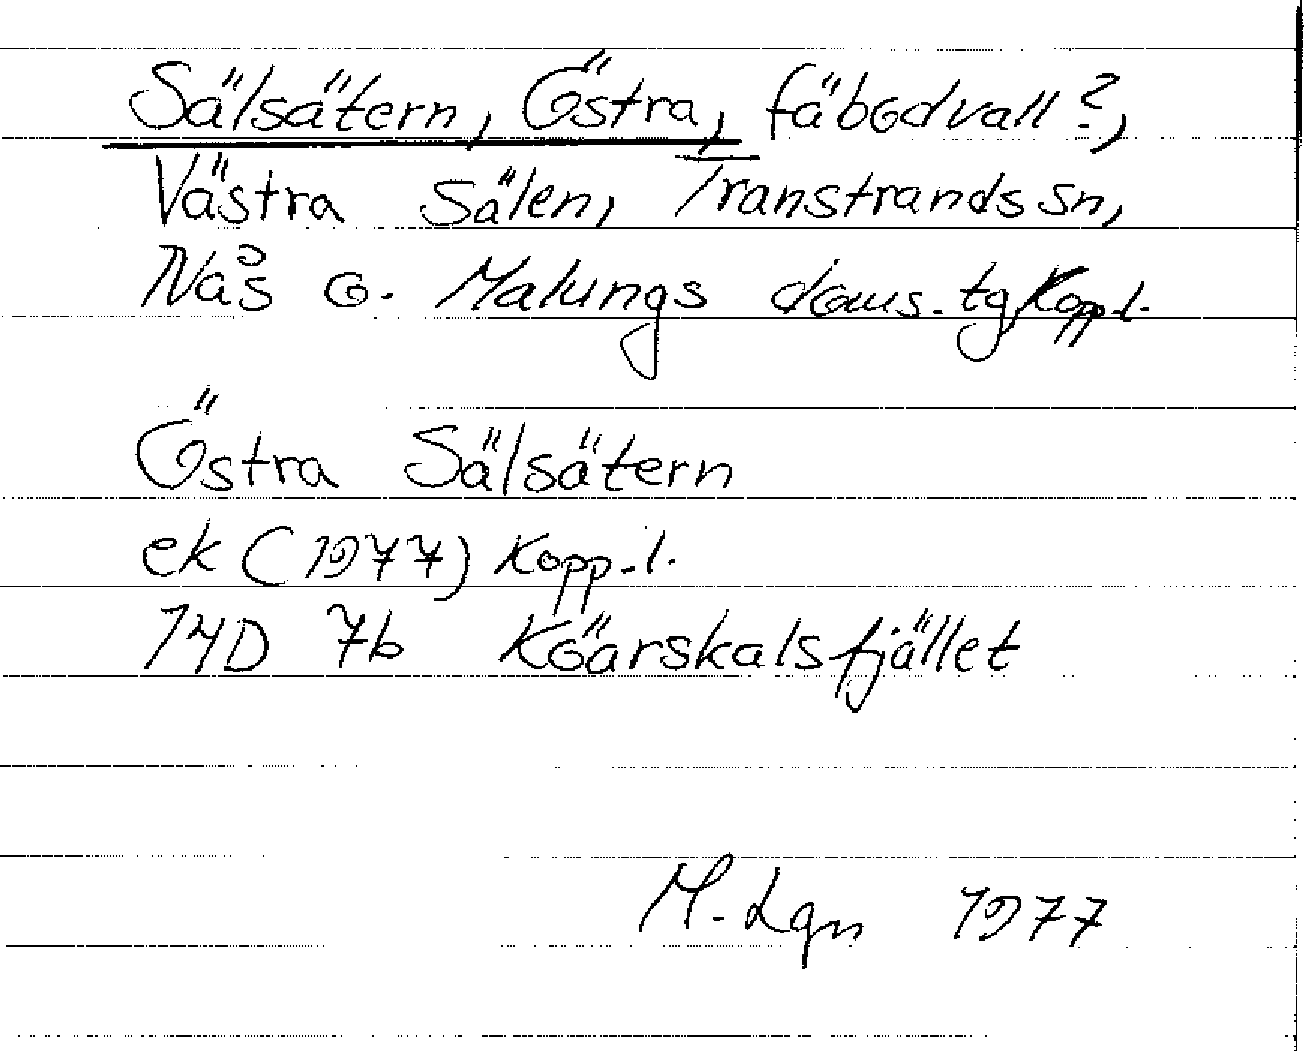 Sälsätern, Östra, fäbodvall?,
Västra Sälen, Transtrands sn,
Nås o. Malungs doms. tg Kopp.l.
Östra Sälsätern
ek (1977) Kopp.l.
14D 7b Köarskalsfjället
M. Lgn 1977